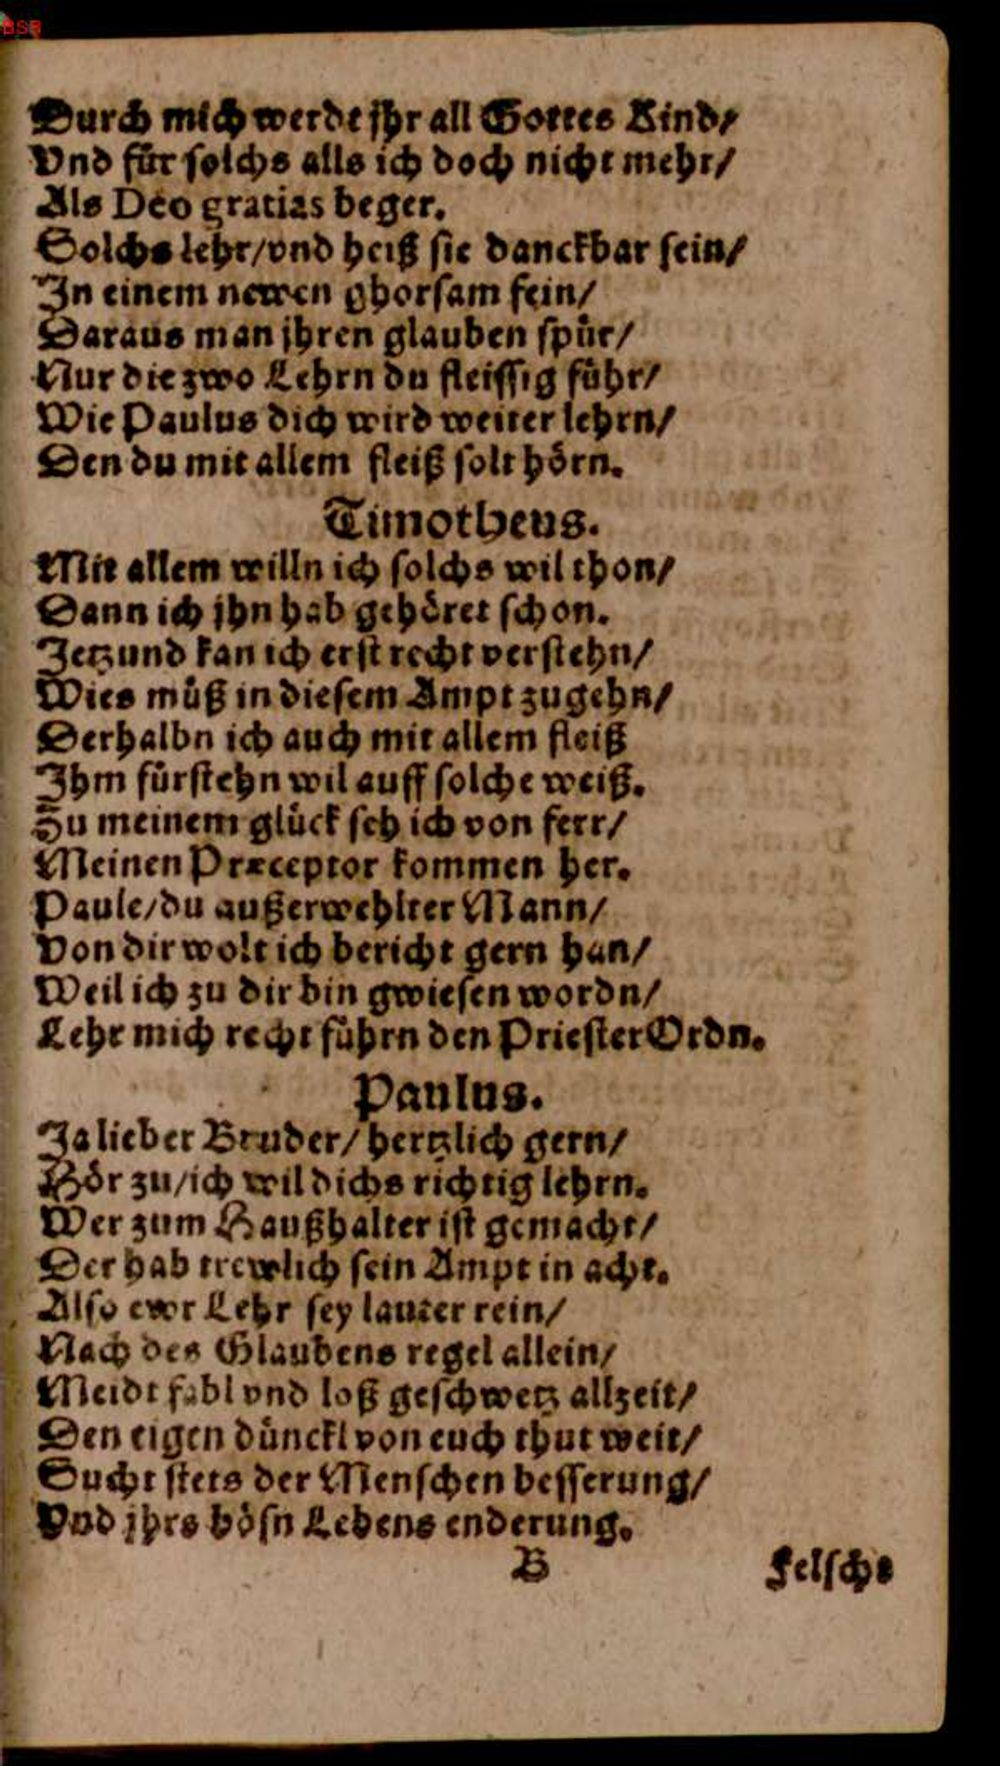 BSB
Durch mich werdt jhr all Gottes Kind/
Vnd für solchs alls ich doch nicht mehr/
Als Deo gratias beger.
Solchs lehr/vnd heiß sie danckbar sein/
In einem newen ghorsam fein/
Daraus man jhren glauben spür/
Nur die zwo Lehrn du fleissig führ/
Wie Paulus dich wird weiter lehrn/
Den du mit allem fleiß solt hörn.
Timotheus.
Mit allem willn ich solchs wil thon/
Dann ich jhn hab gehöret schon.
Jetzund kan ich erst recht verstehn/
Wies müß in diesem Ampt zugehn/
Derhalbn ich auch mit allem fleiß
Ihm fürstehn wil auff solche weiß.
Zu meinem glück seh ich von ferr/
Meinen Præceptor kommen her.
Paule/du außerwehlter Mann/
Von dir wolt ich bericht gern han/
Weil ich zu dir bin gwiesen wordn/
Lehr mich recht führn den Priester Ordn.
Paulus.
Ja lieber Bruder/hertzlich gern/
Hör zu/ich wil dichs richtig lehrn.
Wer zum Haußhalter ist gemacht/
Der hab trewlich sein Ampt in acht.
Also ewr Lehr sey lauter rein/
Nach des Glaubens regel allein/
Meidt fabl vnd loß geschwetz allzeit/
Den eigen dünckl von euch thut weit/
Sucht stets der Menschen besserung/
Vnd jhrs bösn Lebens enderung.
B
Felsche